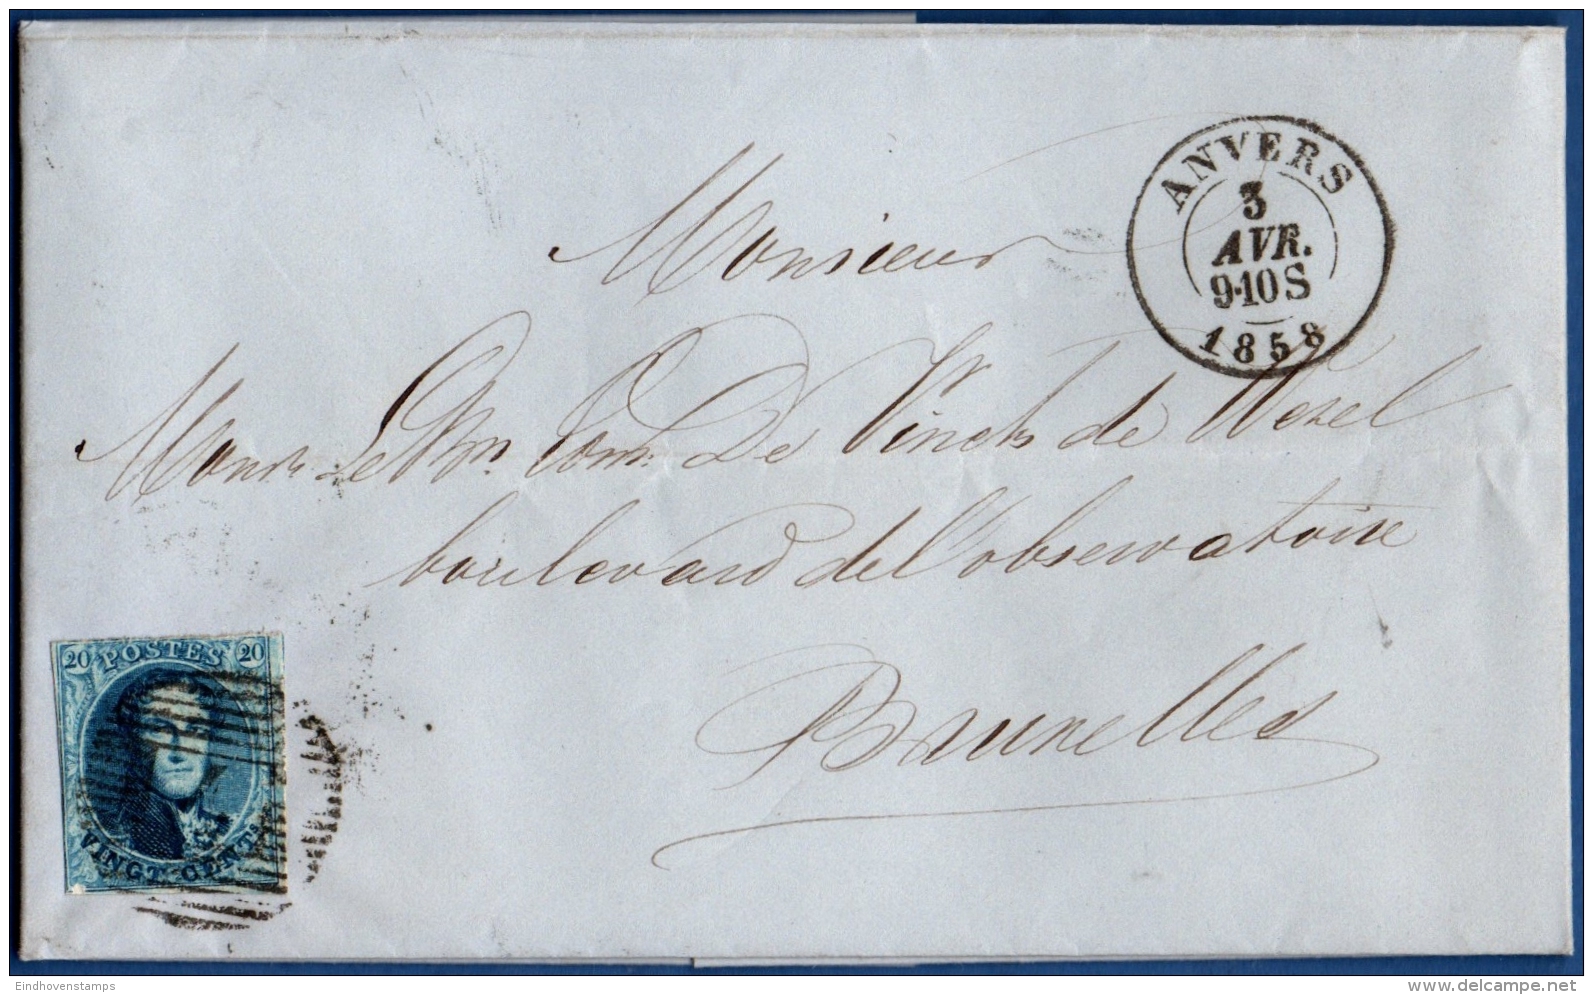 ANVERS
3
AVR.
9·10S
1858
Monsieur
Monsr. Le Bon. Com. De Vinck de Wezel
boulevard de l'observatoire
Bruxelles
20 POSTES 20
VINGT CENTS
Eindhovenstamps
www.delcampe.net